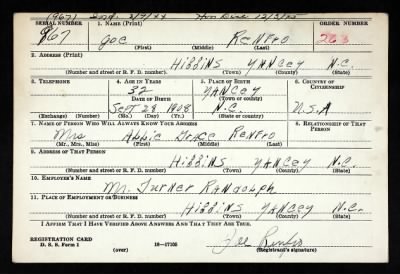 SERIAL NUMBER 1. NAME (Print) ORDER NUMBER
967 Joe Renfro 263
(First) (Middle) (Last)
2. ADDRESS (Print)
Higgins Yancey N.C.
(Number and street or R. F. D. number) (Town) (County) (State)
3. TELEPHONE 4. AGE IN YEARS 5. PLACE OF BIRTH 6. COUNTRY OF CITIZENSHIP
32 Yancey
DATE OF BIRTH (Town or county)
Sept 28 1908 N.C. U.S.A
(Exchange) (Number) (Mo.) (Day) (Yr.) (State or country)
7. NAME OF PERSON WHO WILL ALWAYS KNOW YOUR ADDRESS 8. RELATIONSHIP OF THAT PERSON
Mrs Addie Grace Renfro
(Mr., Mrs., Miss) (First) (Middle) (Last)
9. ADDRESS OF THAT PERSON
Higgins Yancey N.C.
(Number and street or R. F. D. number) (Town) (County) (State)
10. EMPLOYER'S NAME
Mr. Turner Randolph
11. PLACE OF EMPLOYMENT OR BUSINESS
Higgins Yancey N.C.
(Number and street or R. F. D. number) (Town) (County) (State)
I AFFIRM THAT I HAVE VERIFIED ABOVE ANSWERS AND THAT THEY ARE TRUE.
Joe Renfro
REGISTRATION CARD
D. S. S. Form 1 (over) 16—17105 (Registrant's signature)